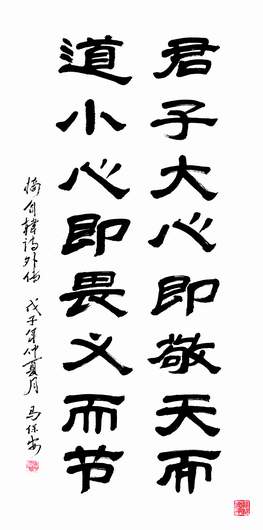 君子大心即敬天而
道小心即畏义而节
韩诗外传 戊子年仲夏月 马保安